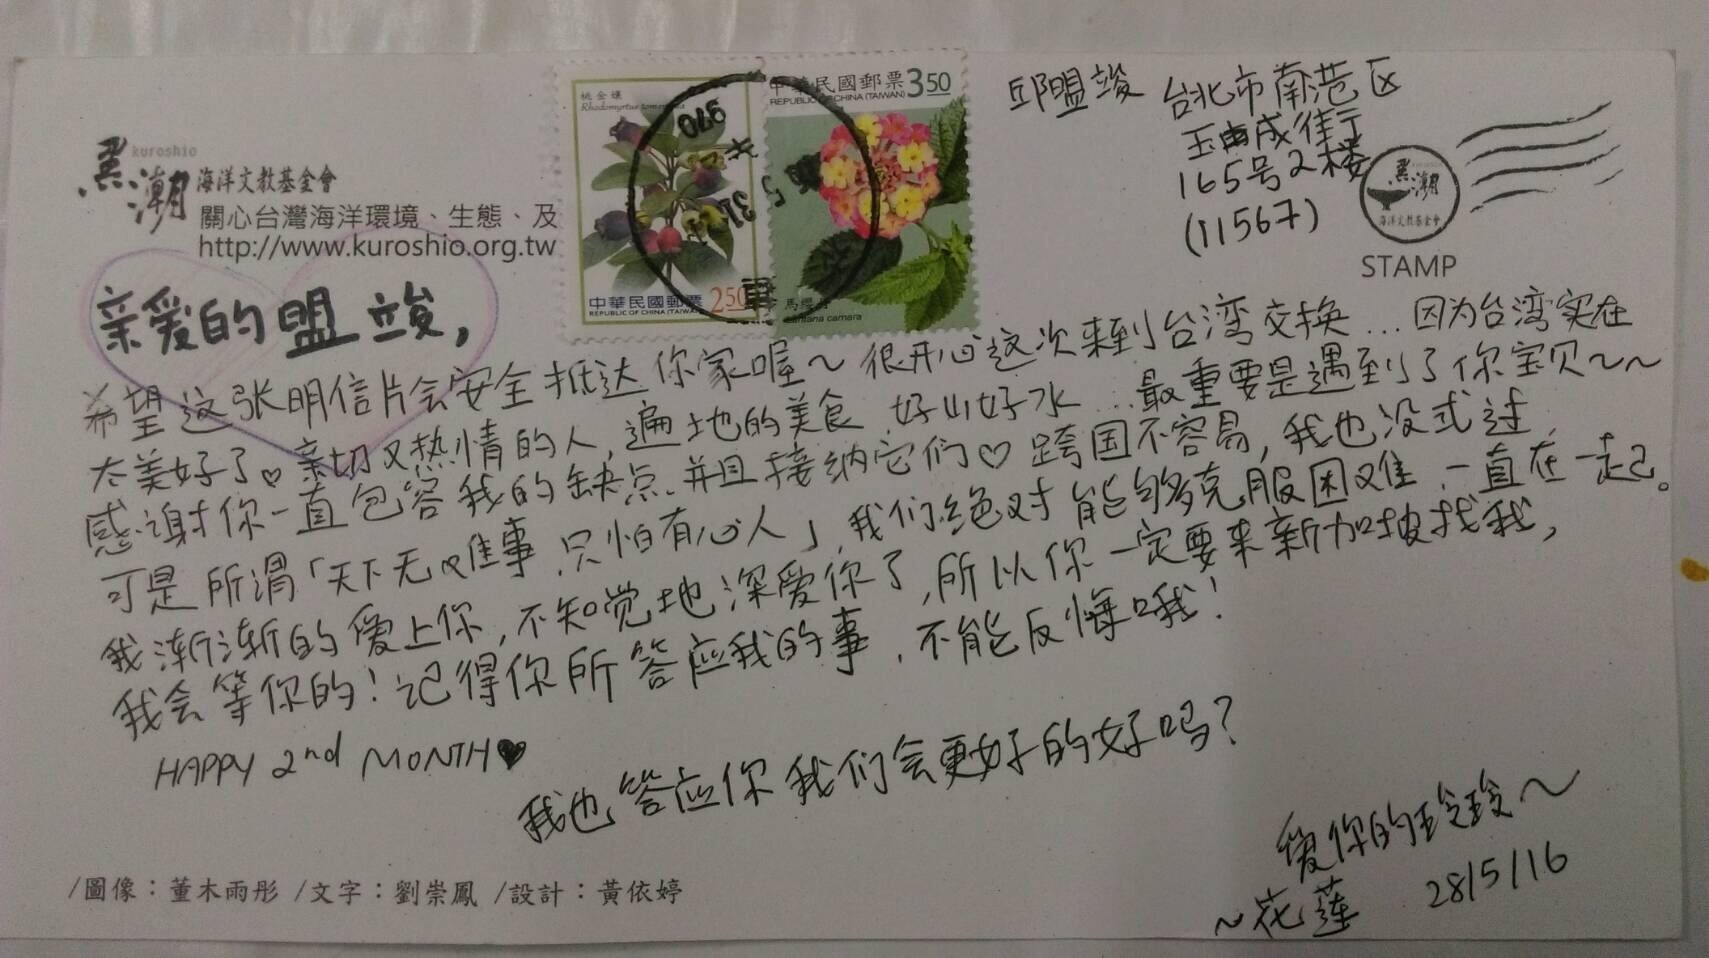 kuroshio
黑潮 海洋文教基金會
關心台灣海洋環境、生態、及
http://www.kuroshio.org.tw
桃金孃
Rhodomyrtus tomentosa
中華民國郵票 2.50
REPUBLIC OF CHINA (TAIWAN)
中華民國郵票 3.50
REPUBLIC OF CHINA (TAIWAN)
馬纓丹
Lantana camara
970
5.31
邱盟竣 台北市南港区
玉成街
165号2楼
(11567)
黑潮
海洋文教基金會
STAMP
亲爱的盟竣,
希望这张明信片会安全抵达你家喔~ 很开心这次来到台湾交换...因为台湾实在
太美好了♡亲切又热情的人,遍地的美食,好山好水...最重要是遇到了你宝贝~~
感谢你一直包容我的缺点,并且接纳它们♡跨国不容易,我也没式过,
可是所谓「天下无难事,只怕有心人」,我们绝对能够克服困难,一直在一起。
我渐渐的爱上你,不知觉地深爱你了,所以你一定要来新加坡找我,
我会等你的!记得你所答应我的事,不能反悔哦!
HAPPY 2nd MONTH♥
我也答应你我们会更好的好吗?
爱你的玲玲~
~花蓮 28/5/16
/圖像:董木雨彤 /文字:劉崇鳳 /設計:黃依婷